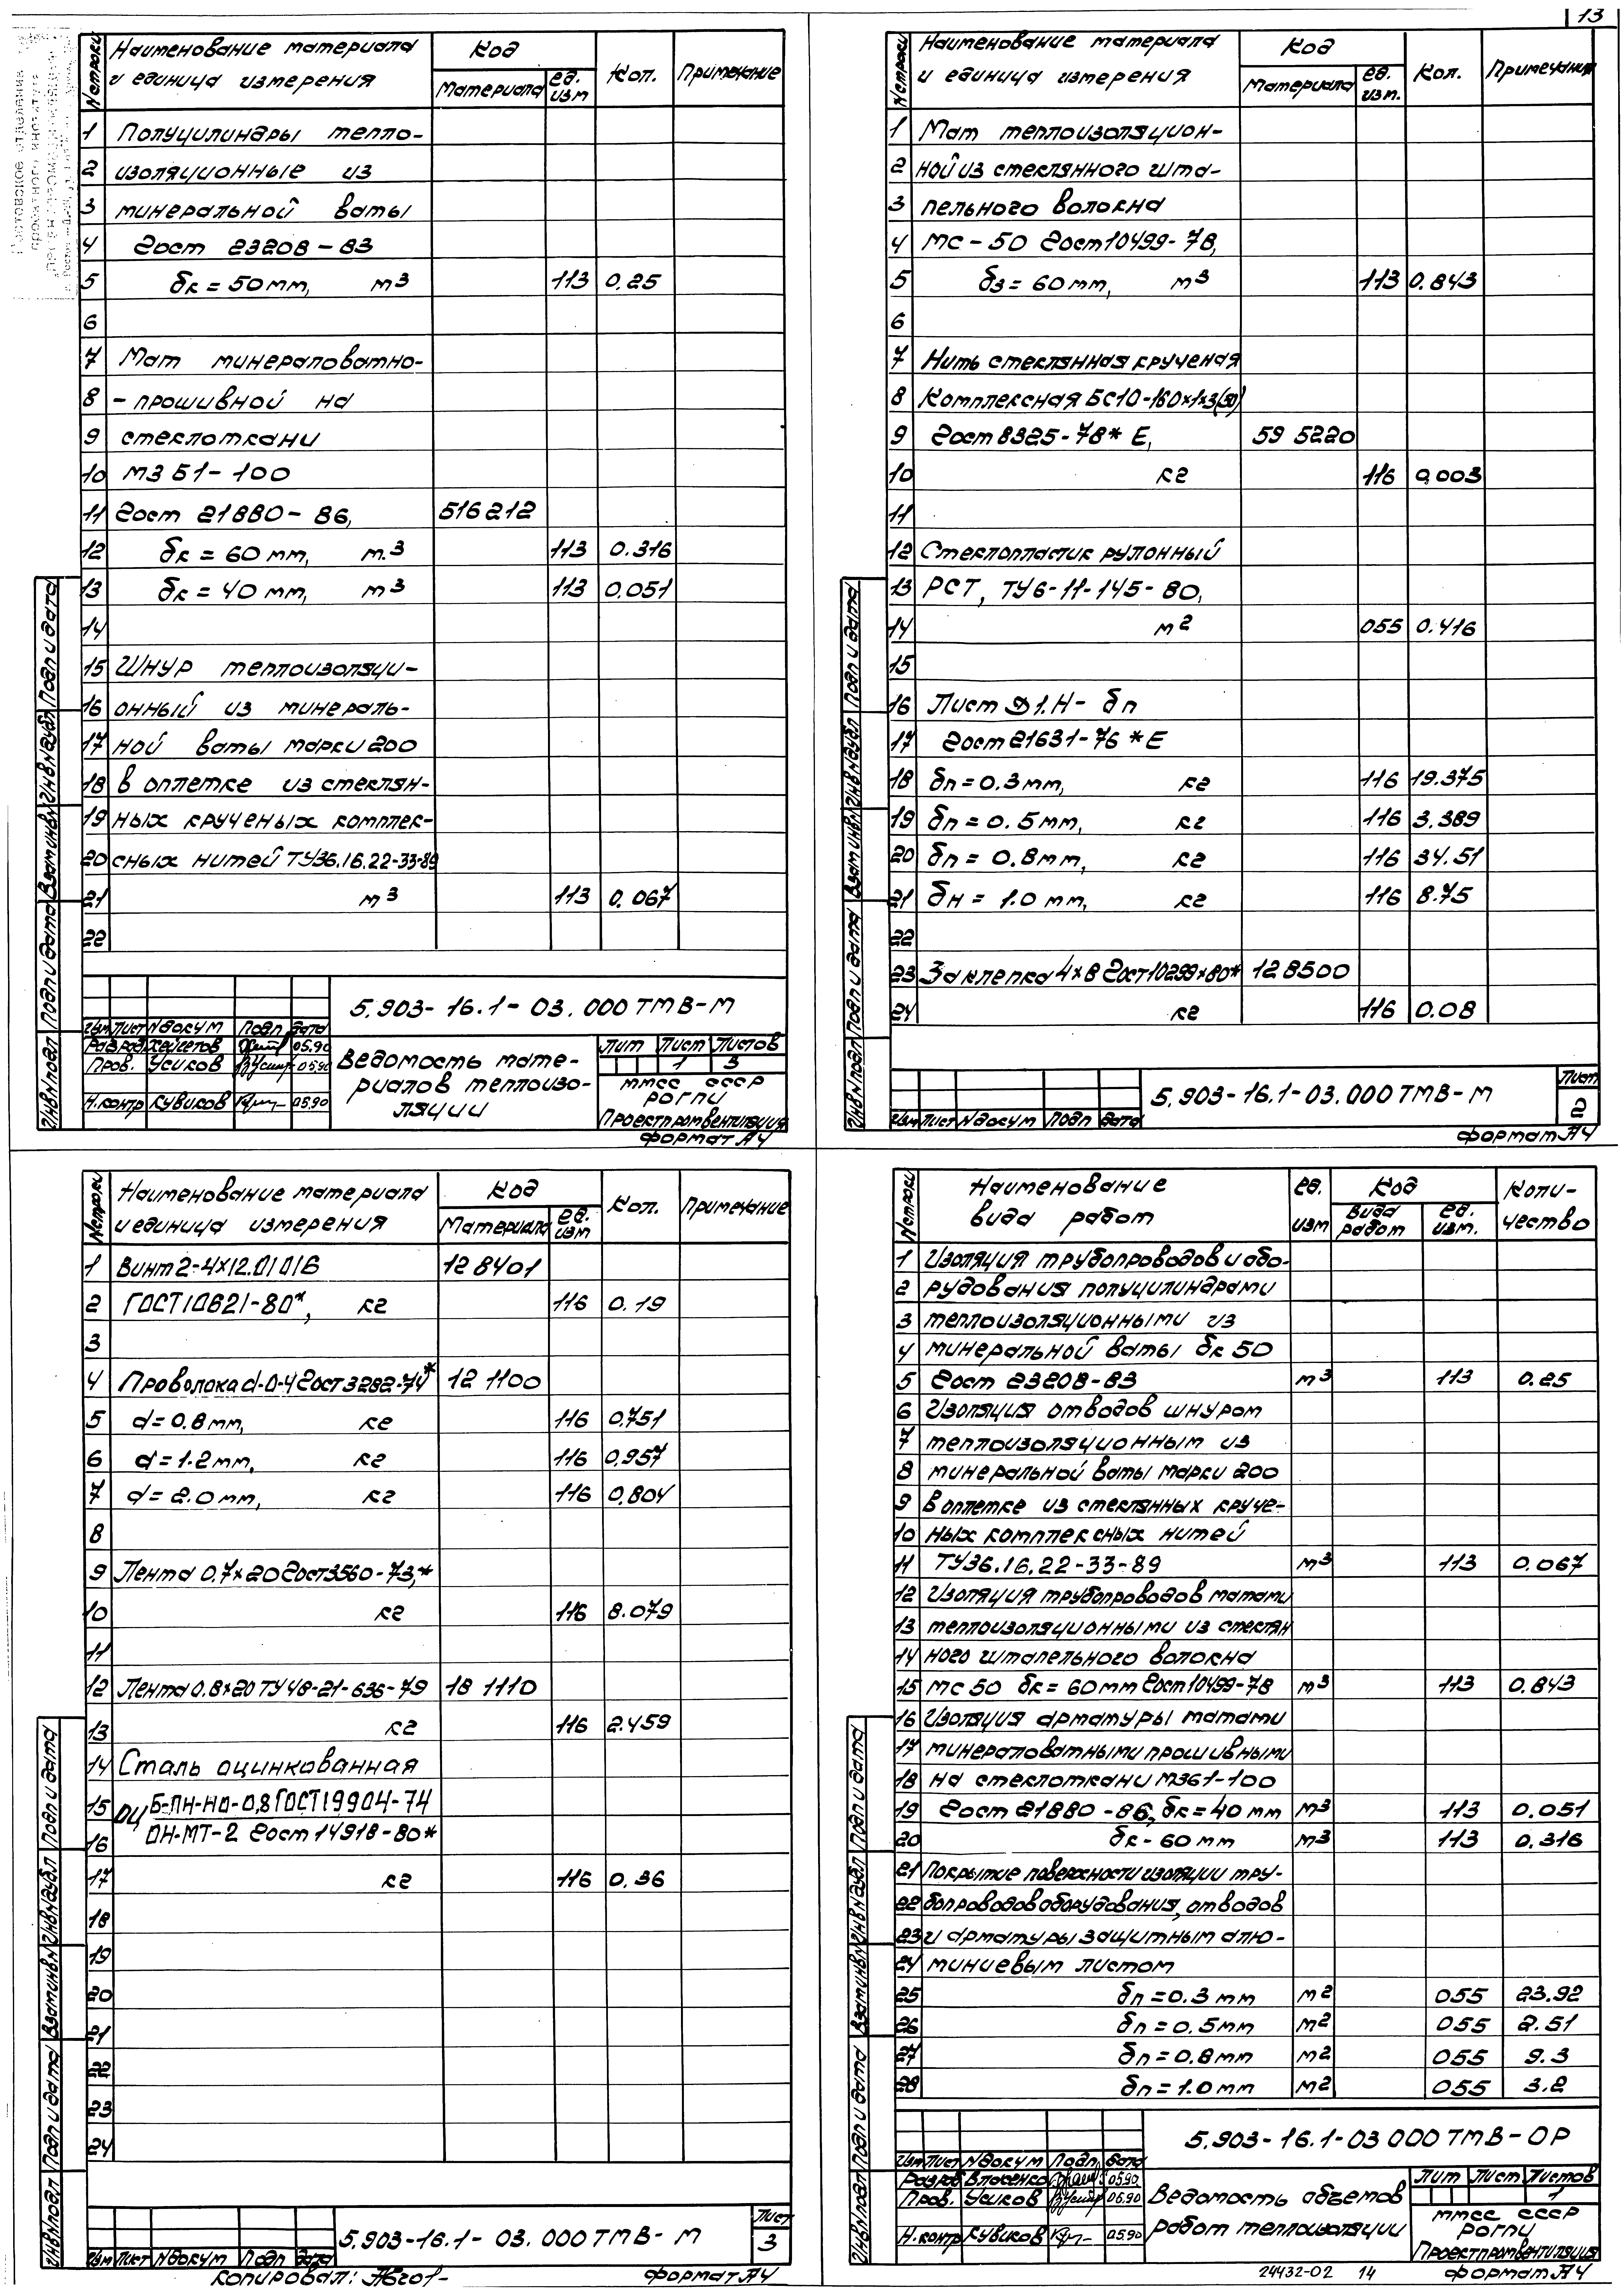 13
№ строки Наименование материала и единица измерения Код Материала ед. изм Кол. Примечание
1 Полуцилиндры тепло-
2 изоляционные из
3 минеральной ваты
4 Гост 23208-83
5 δк = 50 мм, м3 113 0,25
6
7 Мат минераловатно-
8 -прошивной на
9 стеклоткани
10 МЗ Б1-100
11 Гост 21880-86, 516212
12 δк = 60 мм, м.3 113 0.316
13 δк = 40 мм, м3 113 0,051
14
15 Шнур теплоизоляци-
16 онный из минераль-
17 ной ваты марки 200
18 в оплетке из стеклян-
19 ных крученых комплек-
20 сных нитей ТУ36.16.22-33-89
21 м3 113 0,067
22
5.903-16.1-03.000ТМВ-М
Изм Лист №докум Подп Дата
Разраб Хейгетов 05.90
Пров. Усиков 05.90
Н.контр Кувиков 05.90
Ведомость мате-
риалов теплоизо-
ляции
Лит Лист Листов
1 3
ММСС СССР
РОГПИ
Проектпромвентиляция
Формат А4
Инв№подл Подп и дата Взам инв№ Инв№дубл Подп и дата
№ строки Наименование материала и единица измерения Код Материала ед. изм. Кол. Примечания
1 Мат теплоизоляцион-
2 ной из стеклянного шта-
3 пельного волокна
4 МС-50 Гост 10499-78,
5 δз = 60 мм, м3 113 0.843
6
7 Нить стеклянная крученая
8 Комплексная БС10-160х1х3(50)
9 Гост 8325-78* Е, 59 5220
10 кг 116 0,003
11
12 Стеклопластик рулонный
13 РСТ, ТУ6-11-145-80,
14 м2 055 0.416
15
16 Лист Д1.Н-δп
17 Гост 21631-76 *Е
18 δп = 0.3 мм, кг 116 19.375
19 δп = 0.5 мм, кг 116 3.389
20 δп = 0.8 мм, кг 116 34.51
21 δн = 1.0 мм, кг 116 8.75
22
23 Заклепка 4х8 Гост 10299х80* 128500
24 кг 116 0.08
5.903-16.1-03.000ТМВ-М
Лист
2
Изм Лист №докум Подп Дата
Формат А4
Инв№подл Подп и дата Взам инв№ Инв№дубл Подп и дата
№ строки Наименование материала и единица измерения Код Материала ед. изм Кол. Примечание
1 Винт 2-4х12.01016 128401
2 ГОСТ10621-80*, кг 116 0.19
3
4 Проволока d-0-4 Гост 3282-74* 12 1100
5 d = 0.8 мм, кг 116 0,751
6 d = 1.2 мм, кг 116 0,957
7 d = 2.0 мм, кг 116 0,804
8
9 Лента 0,7х20 Гост 3560-73,*
10 кг 116 8.079
11
12 Лента 0.8х20 ТУ 48-21-636-79 18 1110
13 кг 116 2.459
14 Сталь оцинкованная
15 ОЦ Б-ПН-НО-0,8 ГОСТ19904-74
16 ОН-МТ-2 Гост 14918-80*
17 кг 116 0,36
18
19
20
21
22
23
24
5.903-16.1-03.000ТМВ-М
Лист
3
Изм Лист №докум Подп Дата
Копировал:
Формат А4
Инв№подл Подп и дата Взам инв№ Инв№дубл Подп и дата
№ строки Наименование вида работ ед. изм Код Вида работ ед. изм. Коли-чество
1 Изоляция трубопроводов и обо-
2 рудования полуцилиндрами
3 теплоизоляционными из
4 минеральной ваты δк 50
5 Гост 23208-83 м3 113 0.25
6 Изоляция отводов шнуром
7 теплоизоляционным из
8 минеральной ваты марки 200
9 в оплетке из стеклянных круче-
10 ных комплексных нитей
11 ТУ36.16.22-33-89 м3 113 0.067
12 Изоляция трубопроводов матами
13 теплоизоляционными из стеклян
14 ного штапельного волокна
15 МС 50 δк = 60 мм Гост 10499-78 м3 113 0.843
16 Изоляция арматуры матами
17 минераловатными прошивными
18 на стеклоткани МЗ61-100
19 Гост 21880-86, δк = 40 мм м3 113 0.051
20 δк - 60 мм м3 113 0.316
21 Покрытие поверхности изоляции тру-
22 бопроводов оборудования, отводов
23 и арматуры защитным алю-
24 миниевым листом
25 δп = 0.3 мм м2 055 23.92
26 δп = 0.5 мм м2 055 2.51
27 δп = 0.8 мм м2 055 9.3
28 δп = 1.0 мм м2 055 3.2
5.903-16.1-03 000ТМВ-ОР
Изм Лист №докум Подп Дата
Разраб Власенко 05.90
Пров. Усиков 05.90
Н.контр Кувиков 05.90
Ведомость объемов
работ теплоизоляции
Лит Лист Листов
1
ММСС СССР
РОГПИ
Проектпромвентиляция
24432-02 14
Формат А4
Инв№подл Подп и дата Взам инв№ Инв№дубл Подп и дата